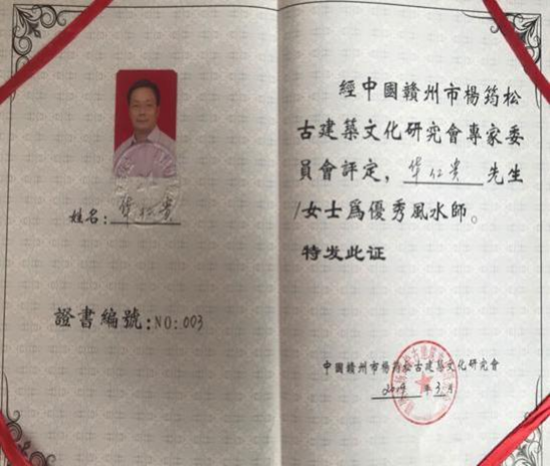 姓名:华仁贵
證書編號:NO:003
經中國赣州市楊筠松
古建築文化研究會專家委
員會評定,华仁贵先生
/女士爲優秀風水師。
特发此证
中國赣州市楊筠松古建築文化研究會